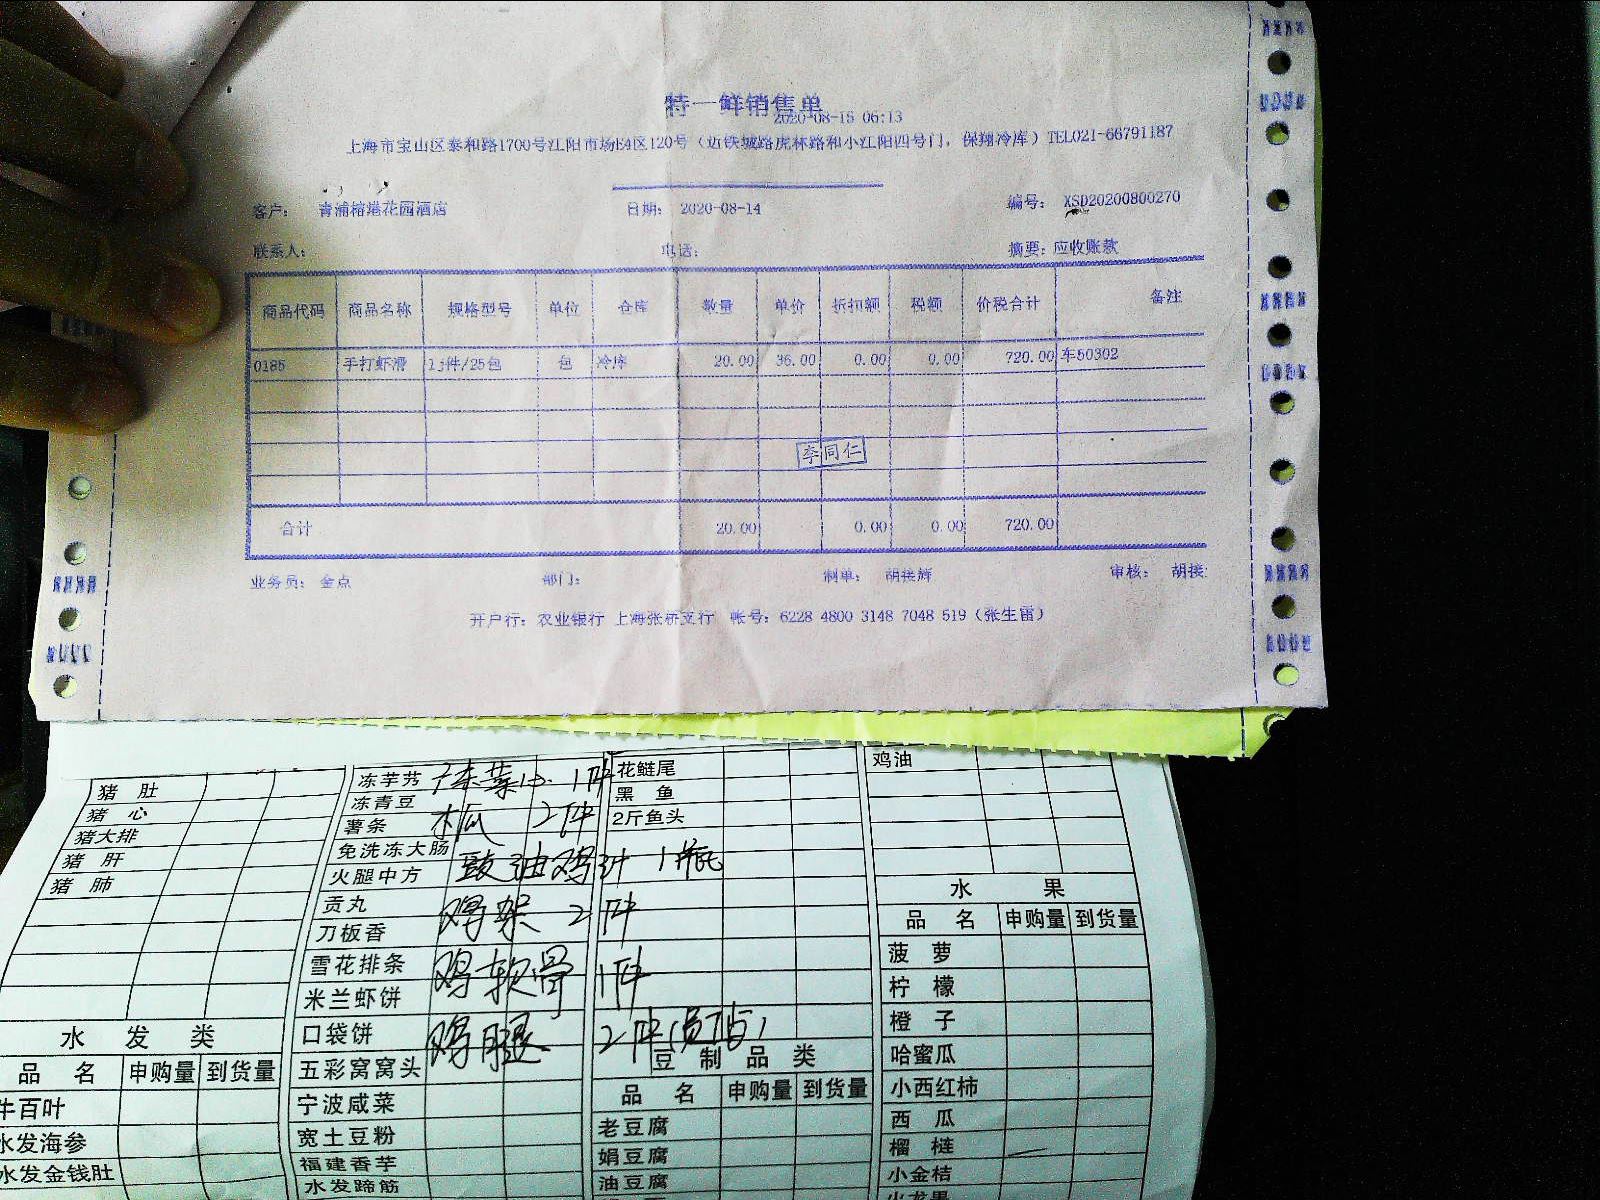 特一鲜销售单
2020-08-15 06:13
上海市宝山区泰和路1700号江阳市场E4区120号（近铁城路虎林路和小江阳四号门，保翔冷库）TEL021-66791187
客户： 青浦榕港花园酒店 日期： 2020-08-14 编号： XSD20200800270
联系人： 电话： 摘要：应收账款
商品代码 商品名称 规格型号 单位 仓库 数量 单价 折扣额 税额 价税合计 备注
0185 手打虾滑 1*件/25包 包 冷库 20.00 36.00 0.00 0.00 720.00 车50302
李同仁
合计 20.00 0.00 0.00 720.00
业务员： 金点 部门： 制单： 胡接辉 审核： 胡接
开户行：农业银行 上海张桥支行 帐号：6228 4800 3148 7048 519（张生雷）
猪肚 冻芋艿 1件 花鲢尾 鸡油
猪心 冻青豆 黑鱼
猪大排 薯条 木瓜 2件 2斤鱼头
猪肝 免洗冻大肠
猪肺 火腿中方 豉油鸡汁 1瓶
贡丸 水果
刀板香 鸡架 2件 品名 申购量 到货量
雪花排条 鸡软骨 1件 菠萝
米兰虾饼 柠檬
水发类 口袋饼 鸡腿 2件 橙子
品名 申购量 到货量 五彩窝窝头 豆制品类 哈蜜瓜
牛百叶 宁波咸菜 品名 申购量 到货量 小西红柿
水发海参 宽土豆粉 老豆腐 西瓜
水发金钱肚 福建香芋 娟豆腐 榴梿
水发蹄筋 油豆腐 小金桔
火龙果